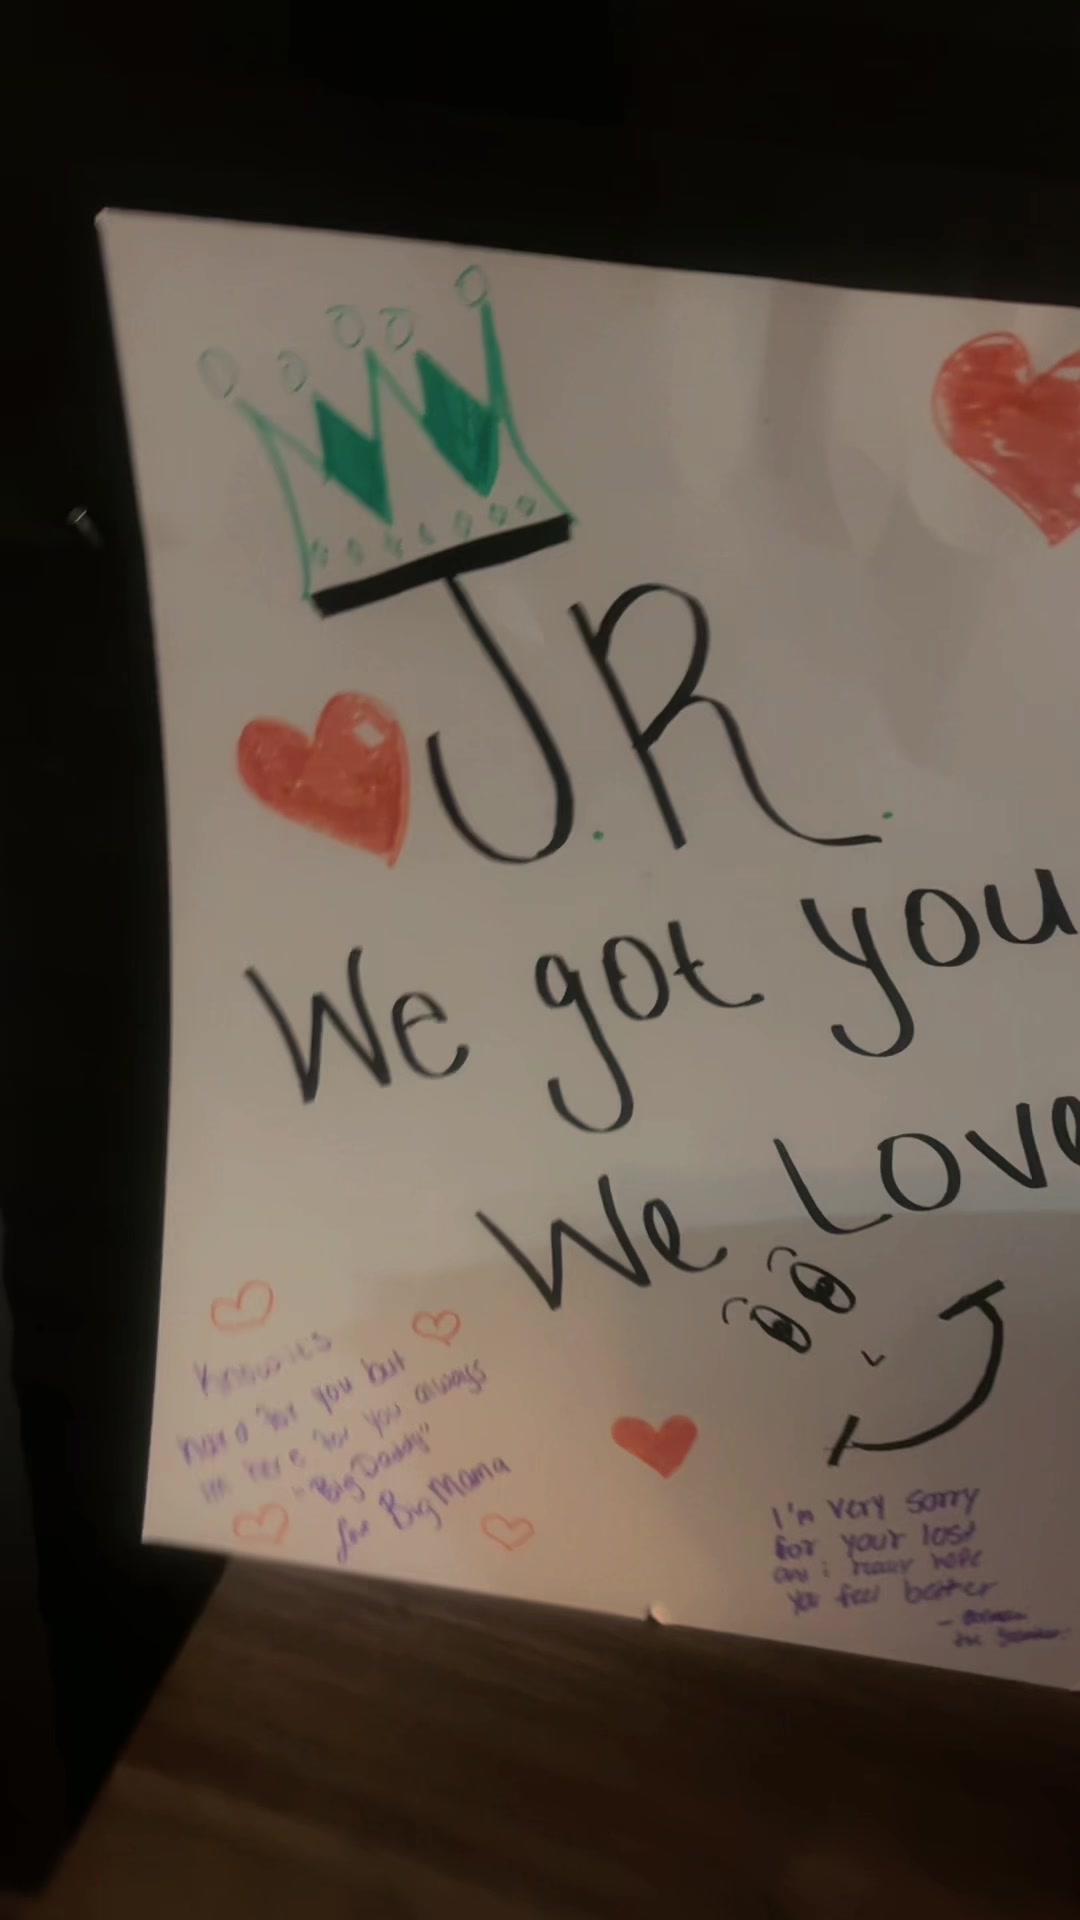 J.R.
We got you
We Love
Know it's
hard for you but
im here for you always
"Big Daddy"
Love Big Mama
I'm very sorry
for your lost
and i really hope
you feel better